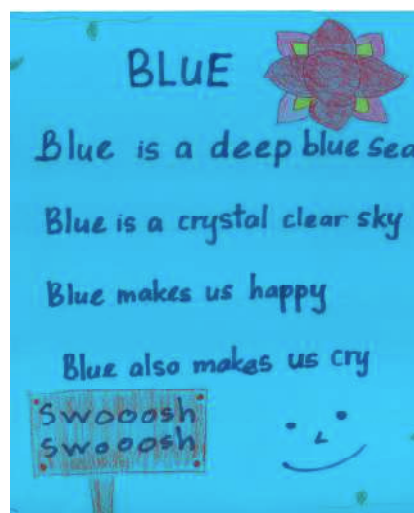 BLUE
Blue is a deep blue sea
Blue is a crystal clear sky
Blue makes us happy
Blue also makes us cry
Swooosh
swooosh